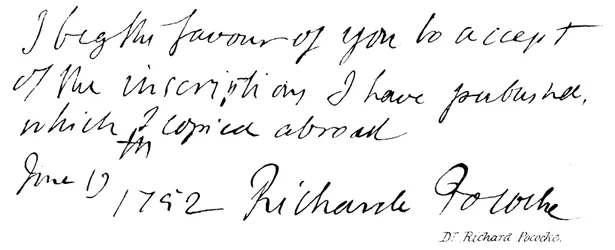 I beg the favour of you to accept
of the inscriptions I have published,
which I copied abroad
June 19th 1752 Richard Pococke
Dr. Richard Pococke.